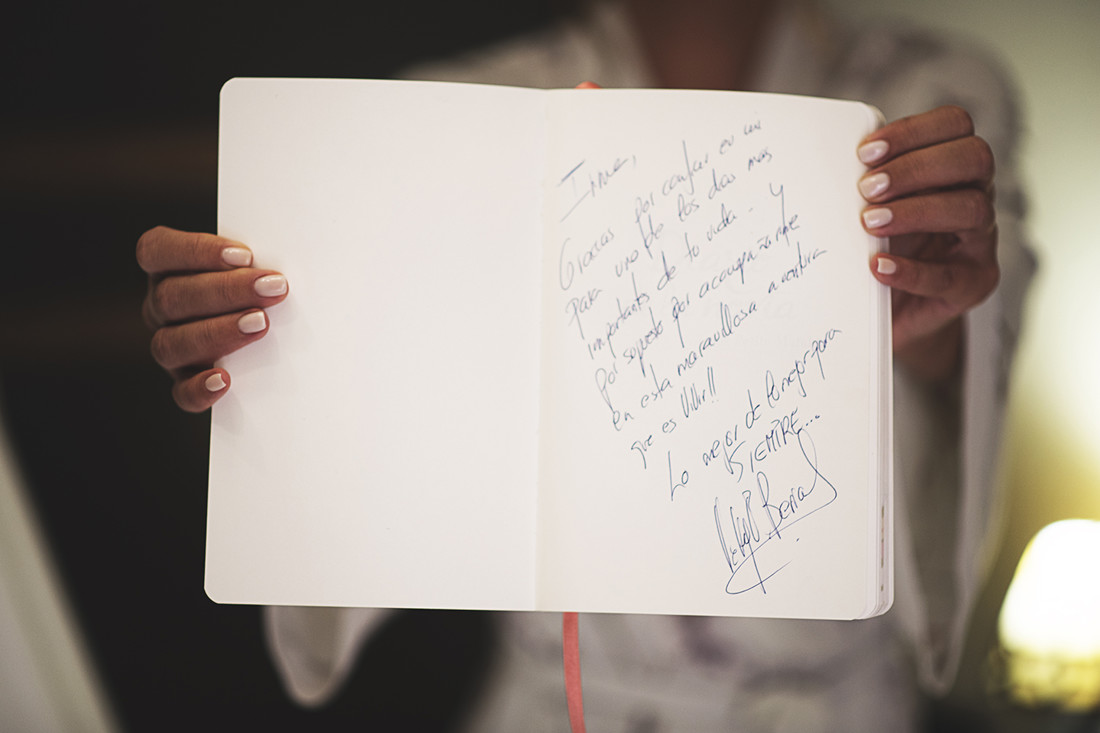 Inma,
Gracias por confiar en mi
para uno de los dias más
importants de tu vida. y
por supuesto por acompañarme
en esta maravillosa aventura
que es Vivir!!
Lo mejor de lo mejor para
SIEMPRE...